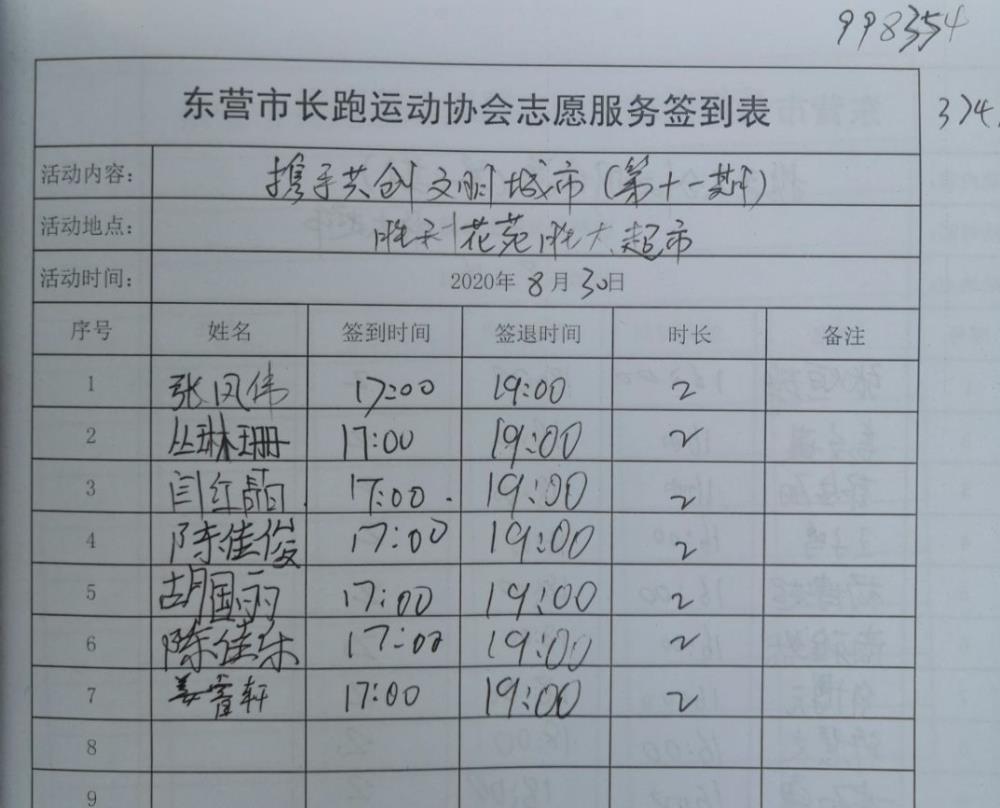 998354
东营市长跑运动协会志愿服务签到表
374
活动内容： 携手共创文明城市（第十一期）
活动地点： 胜利花苑胜大超市
活动时间： 2020年8月30日
序号 姓名 签到时间 签退时间 时长 备注
1 张凤伟 17:00 19:00 2
2 丛琳珊 17:00 19:00 2
3 闫红晶 17:00 19:00 2
4 陈佳俊 17:00 19:00 2
5 胡国丽 17:00 19:00 2
6 陈佳乐 17:00 19:00 2
7 姜 轩 17:00 19:00 2
8
9